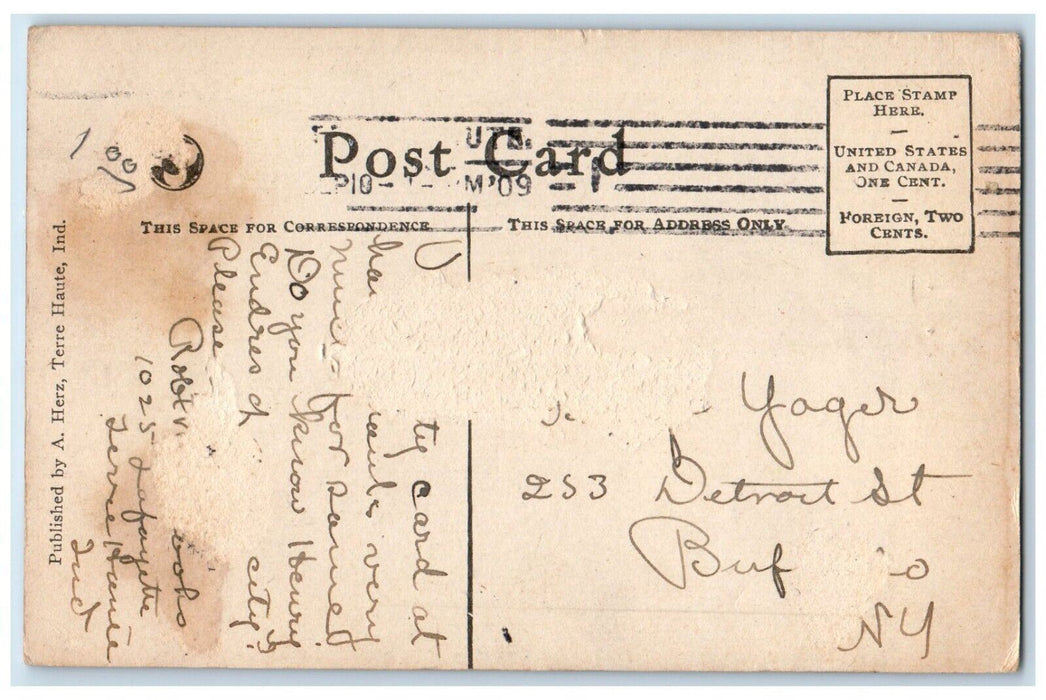 Post Card
M '09
THIS SPACE FOR CORRESPONDENCE
THIS SPACE FOR ADDRESS ONLY
PLACE STAMP
HERE.
—
UNITED STATES
AND CANADA,
ONE CENT.
—
FOREIGN, TWO
CENTS.
1 00
Published by A. Herz, Terre Haute, Ind.
ty card at
very
for same
Do you know Henry
Endres of city?
Please
Robt
1025 Lafayette
Terre Haute
Ind
Yager
253 Detroit St
Buf o
NY